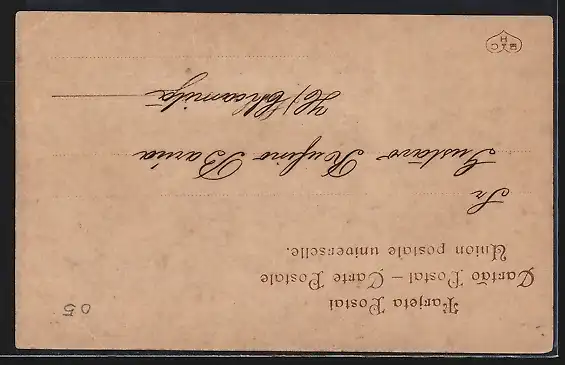 Tarjeta Postal
Cartão Postal — Carte Postale
Union postale universelle.
Sr
Gustavo Rufino Baria
H B & C